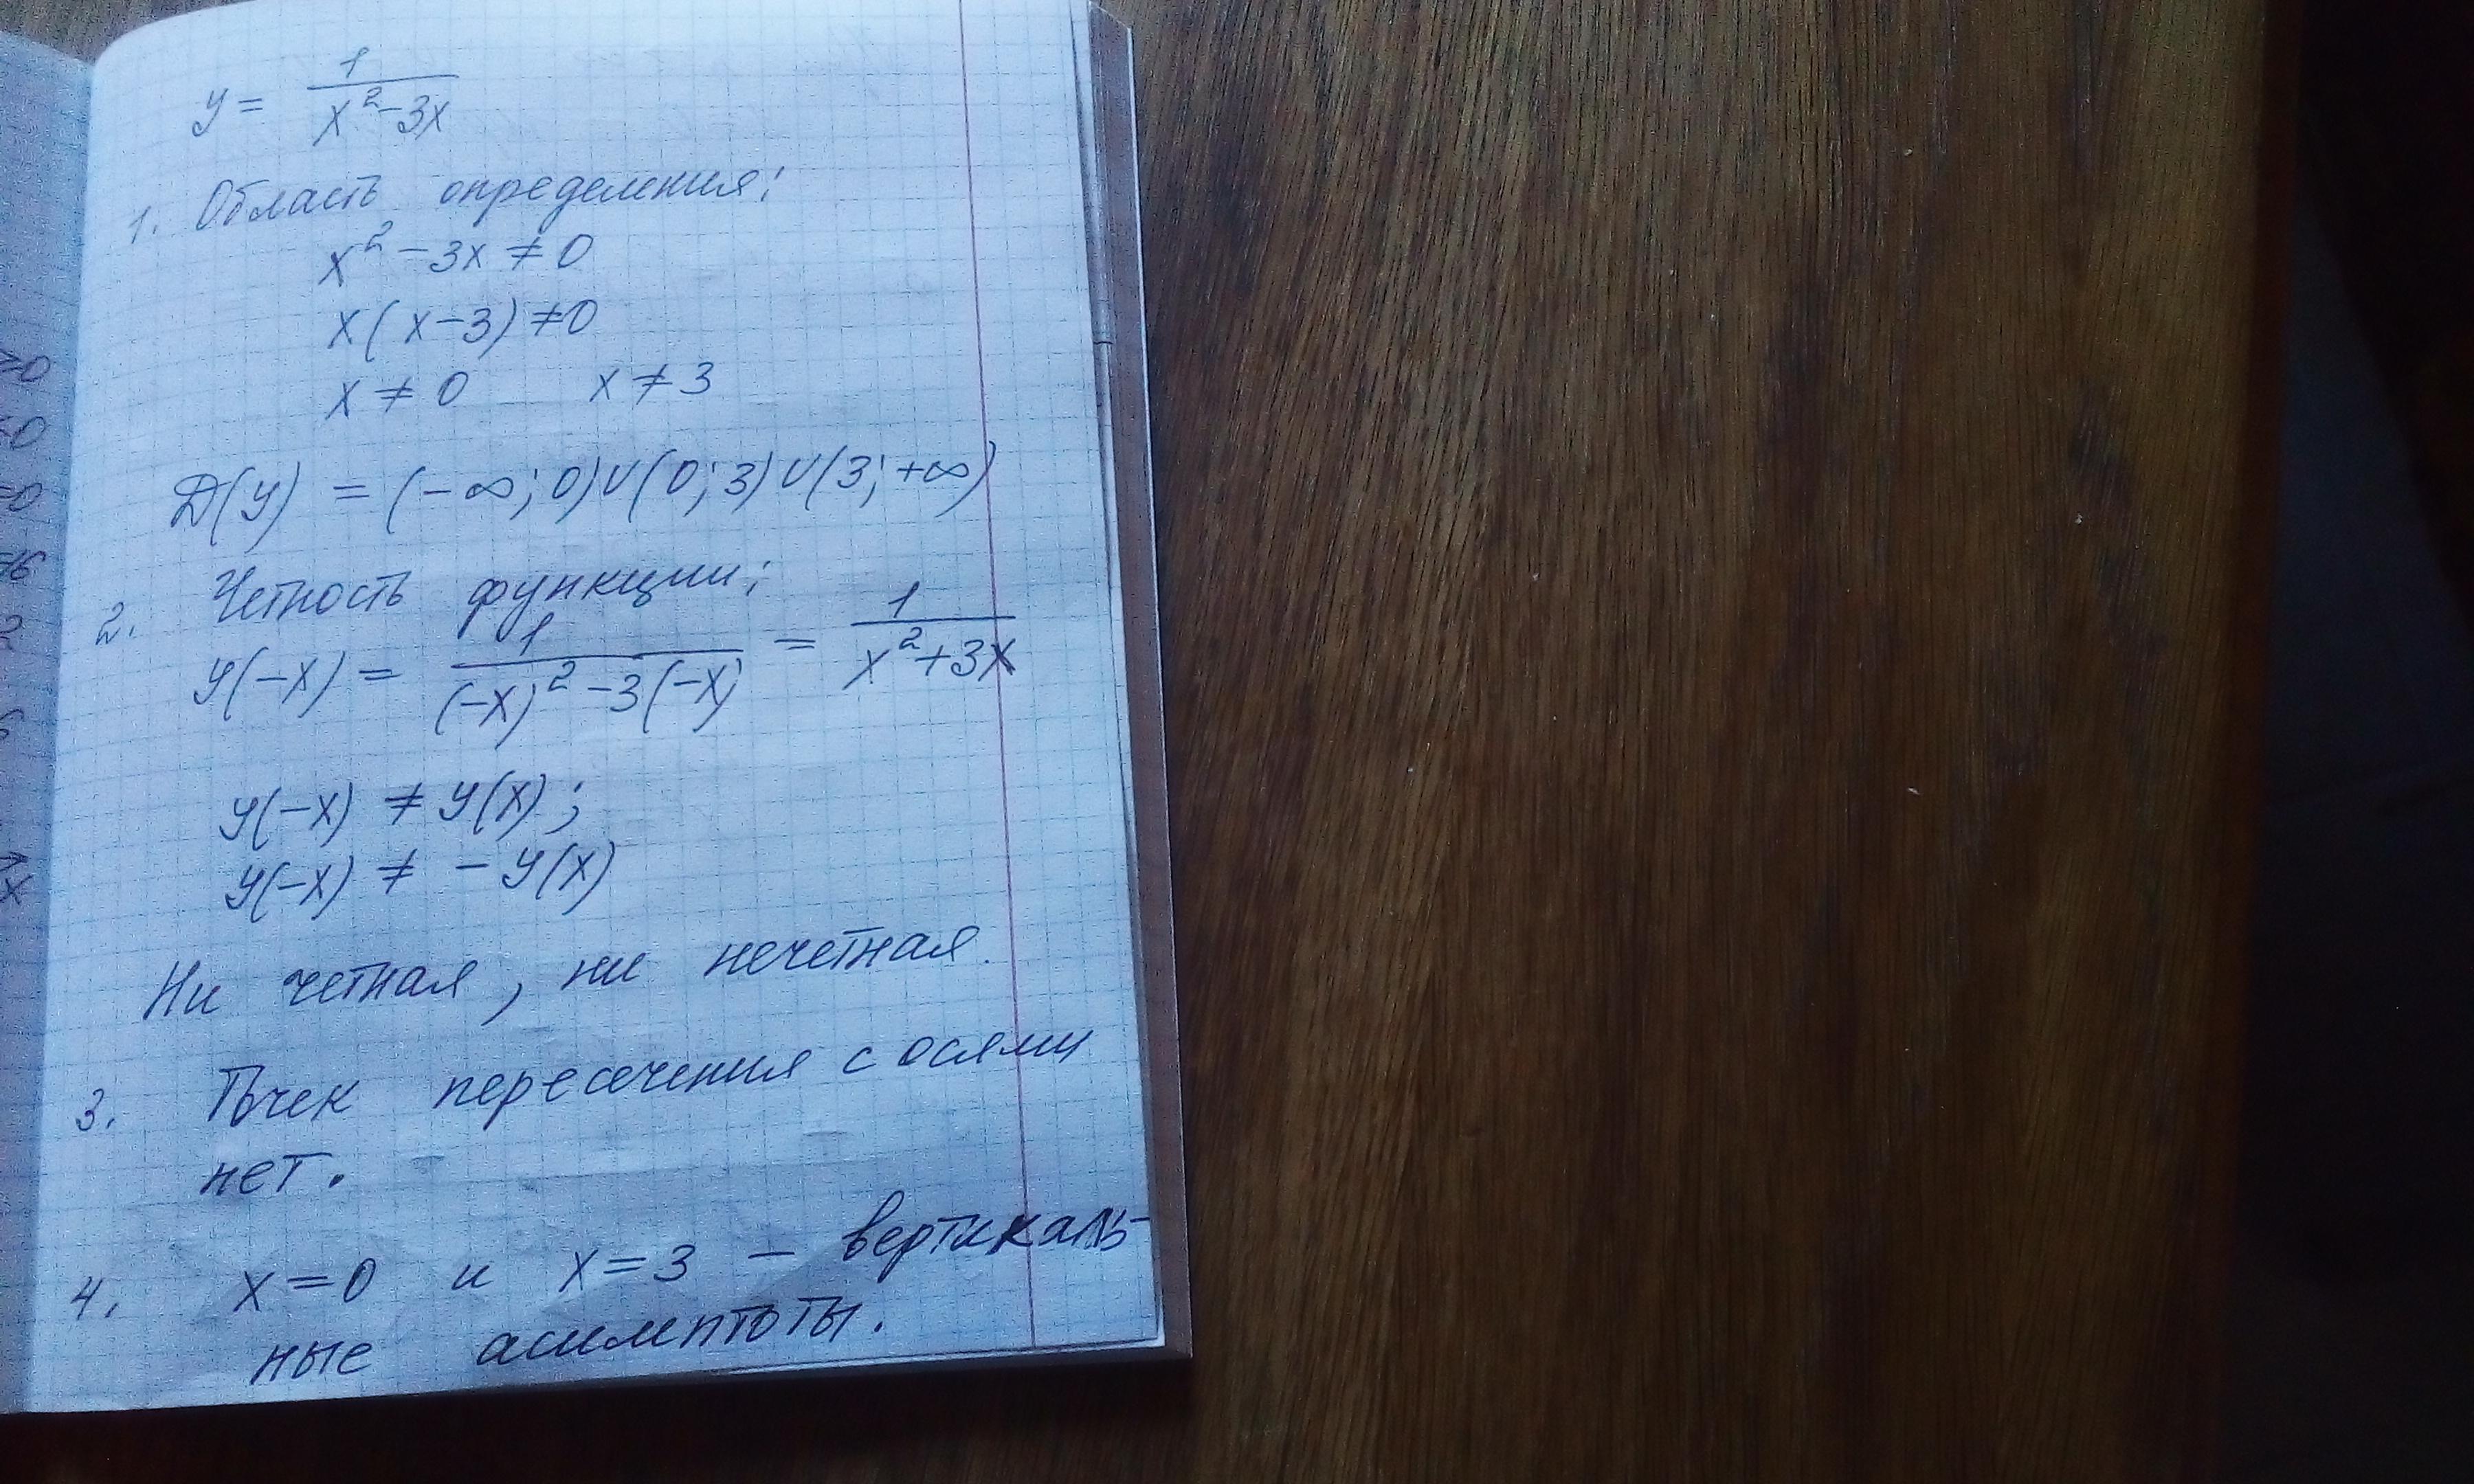 y = 1/(x² - 3x)
1. Область определения:
x² - 3x ≠ 0
x(x - 3) ≠ 0
x ≠ 0 x ≠ 3
D(y) = (-∞; 0)∪(0; 3)∪(3; +∞)
2. Четность функции:
y(-x) = 1/((-x)² - 3(-x)) = 1/(x² + 3x)
y(-x) ≠ y(x);
y(-x) ≠ - y(x)
Ни четная, ни нечетная.
3. Точек пересечения с осями
нет.
4. x = 0 и x = 3 – вертикаль-
ные асимптоты.